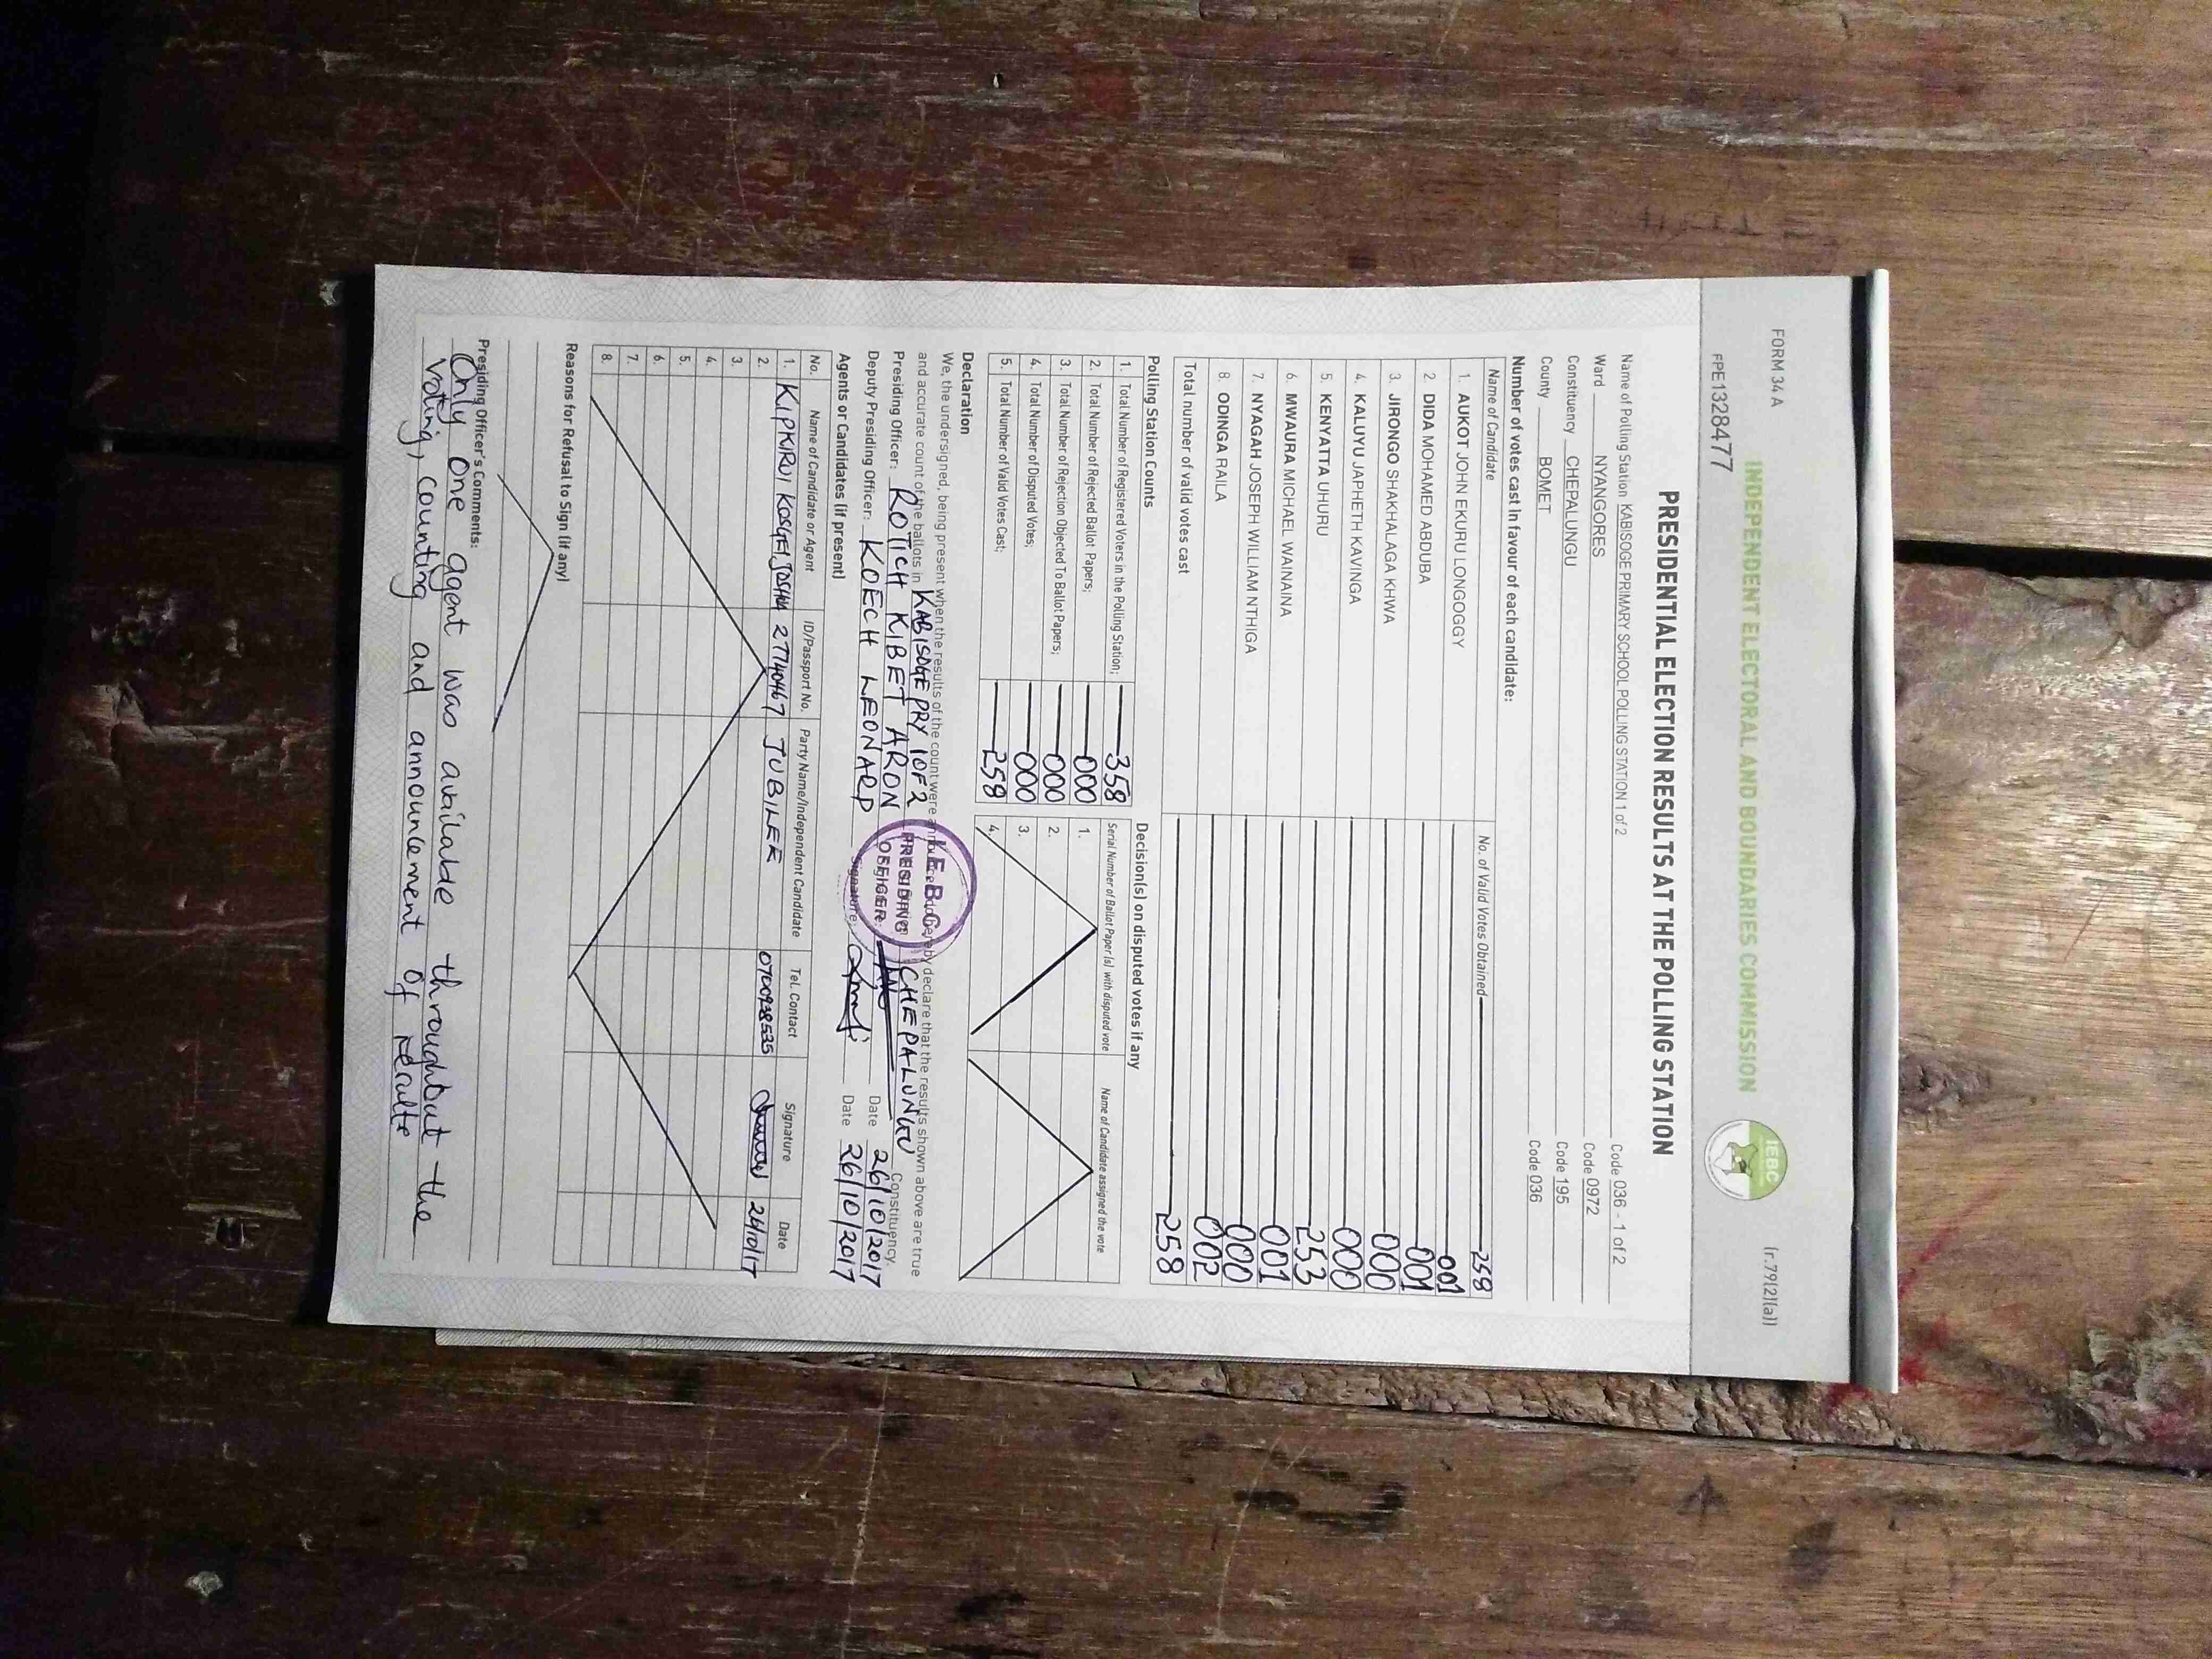 FORM 34A
(r.79(2)(a))
INDEPENDENT ELECTORAL AND BOUNDARIES COMMISSION
IEBC
FPE1328477
PRESIDENTIAL ELECTION RESULTS AT THE POLLING STATION
Name of Polling Station KABISOGE PRIMARY SCHOOL POLLING STATION 1 of 2 Code 036 - 1 of 2
Ward NYANGORES Code 0972
Constituency CHEPALUNGU Code 195
County BOMET Code 036
Number of votes cast in favour of each candidate:
Name of Candidate No. of Valid Votes Obtained 258
1. AUKOT JOHN EKURU LONGOGGY 001
2 DIDA MOHAMED ABDUBA 001
3. JIRONGO SHAKHALAGA KHWA 000
4. KALUYU JAPHETH KAVINGA 000
5. KENYATTA UHURU 253
6. MWAURA MICHAEL WAINAINA 001
7. NYAGAH JOSEPH WILLIAM NTHIGA 000
8. ODINGA RAILA 002
Total number of valid votes cast 258
Polling Station Counts
1. Total Number of Registered Voters in the Polling Station; 358
2. Total Number of Rejected Ballot Papers; 000
3. Total Number of Rejection Objected To Ballot Papers; 000
4. Total Number of Disputed Votes; 000
5. Total Number of Valid Votes Cast; 258
Decision(s) on disputed votes if any
Serial Number of Ballot Paper (s) with disputed vote Name of Candidate assigned the vote
1.
2.
3.
4.
Declaration
We, the undersigned, being present when the results of the count were declare that the results shown above are true
and accurate count of the ballots in KABISOGE PRY 1 OF 2 CHEPALUNGU Constituency.
Presiding Officer: ROTICH KIBET ARON Date 26/10/2017
Deputy Presiding Officer: KOECH LEONARD Signature: Date 26/10/2017
I.E.B.C
PRESIDING
OFFICER
Agents or Candidates (if present)
No. Name of Candidate or Agent ID/Passport No. Party Name/Independent Candidate Tel. Contact Signature Date
1. KIPKIRUI KOSGEI JOSHUA 27740467 JUBILEE 0700928535 26/10/17
2.
3.
4.
5.
6.
7.
8.
Reasons for Refusal to Sign (if any)
Presiding Officer's Comments:
Only one agent was available throughout the
voting, counting and announcement of results